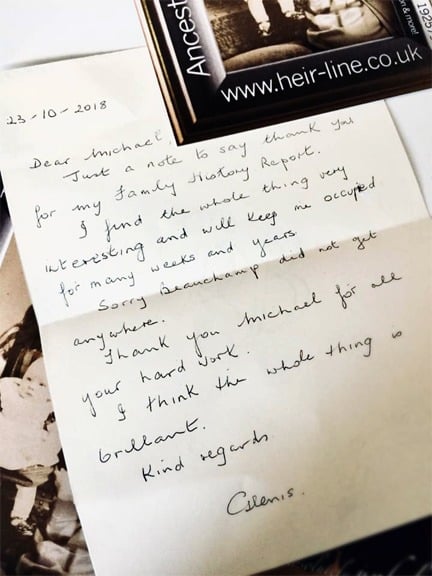 Ancest
1925/
on & more!
www.heir-line.co.uk
23-10-2018
Dear Michael,
Just a note to say thank you
for my Family History Report.
I find the whole thing very
interesting and will keep me occupied
for many weeks and years.
Sorry Beauchamp did not get
anywhere.
Thank you Michael for all
your hard work.
I think the whole thing is
brillant.
Kind regards
Glenis.